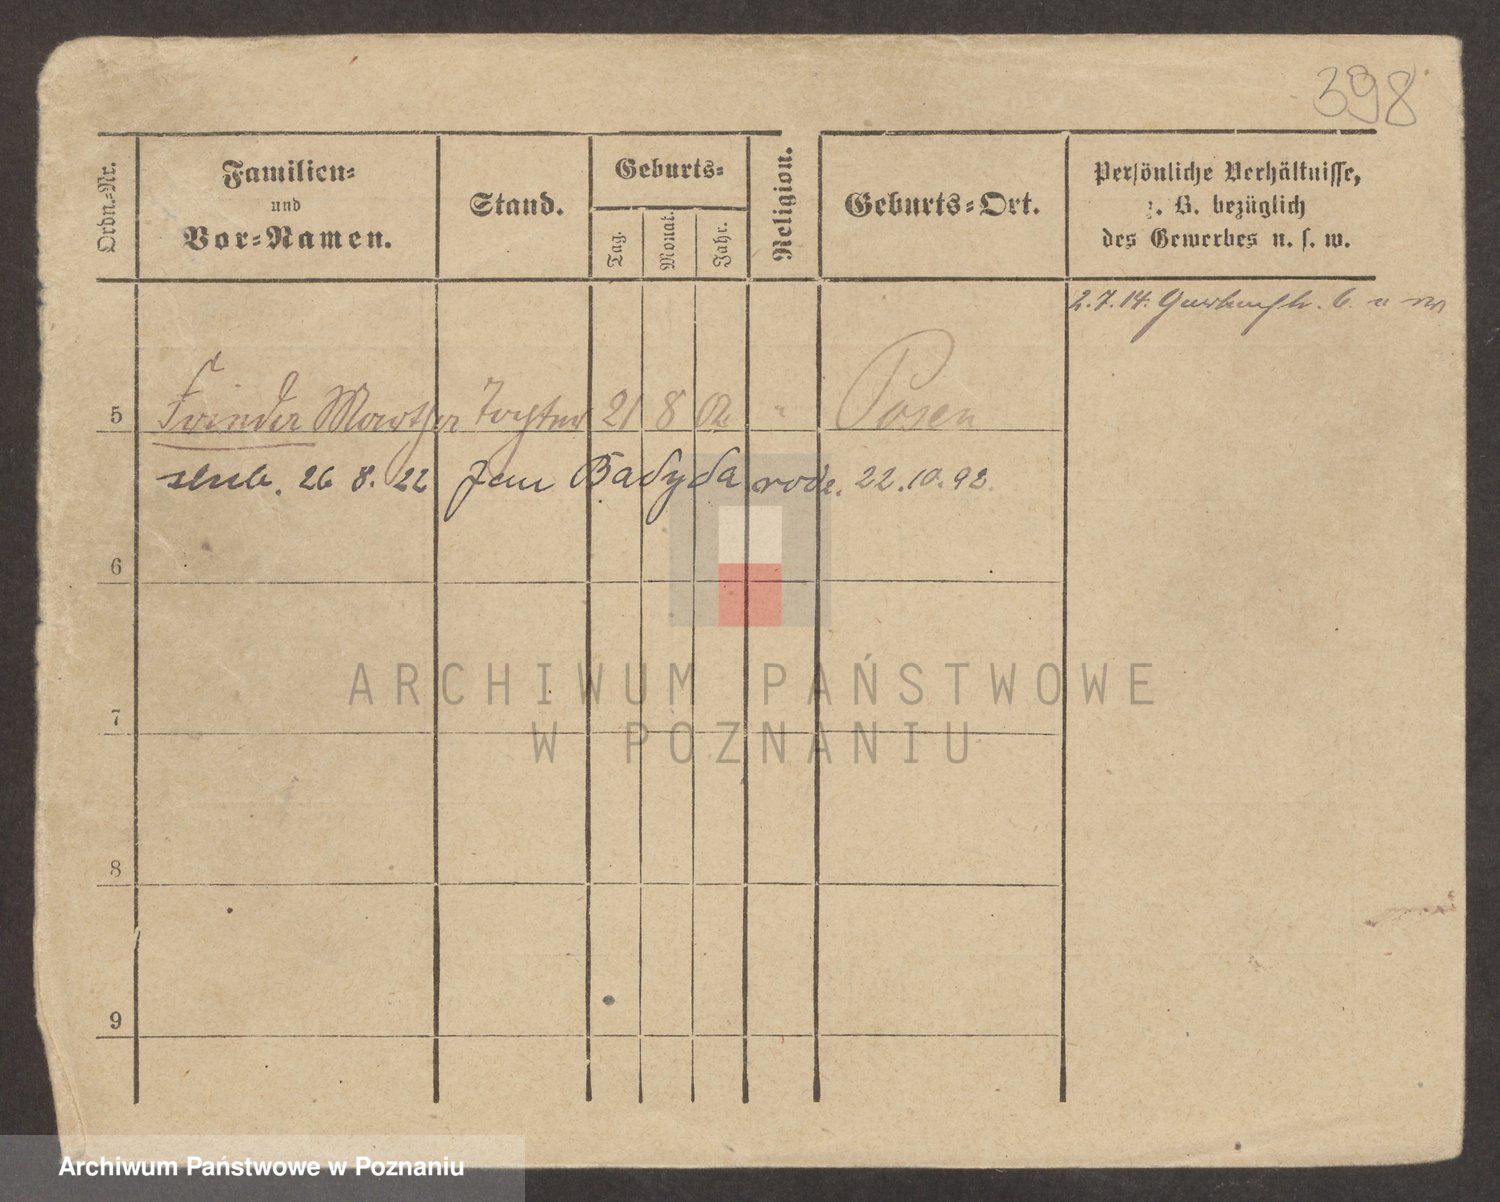 398
Ordn.-Nr.
Familien-
und
Vor-Namen.
Stand.
Geburts-
Tag.
Monat.
Jahr.
Religion.
Geburts-Ort.
Persönliche Verhältnisse,
z. B. bezüglich
des Gewerbes u. s. w.
2.7.14.
5 Martha Tochter 21 8 02 " Posen
ślub. 26 8. 22 Jan Badyda rodz. 22.10.92.
6
7
8
9
ARCHIWUM PAŃSTWOWE
W POZNANIU
Archiwum Państwowe w Poznaniu